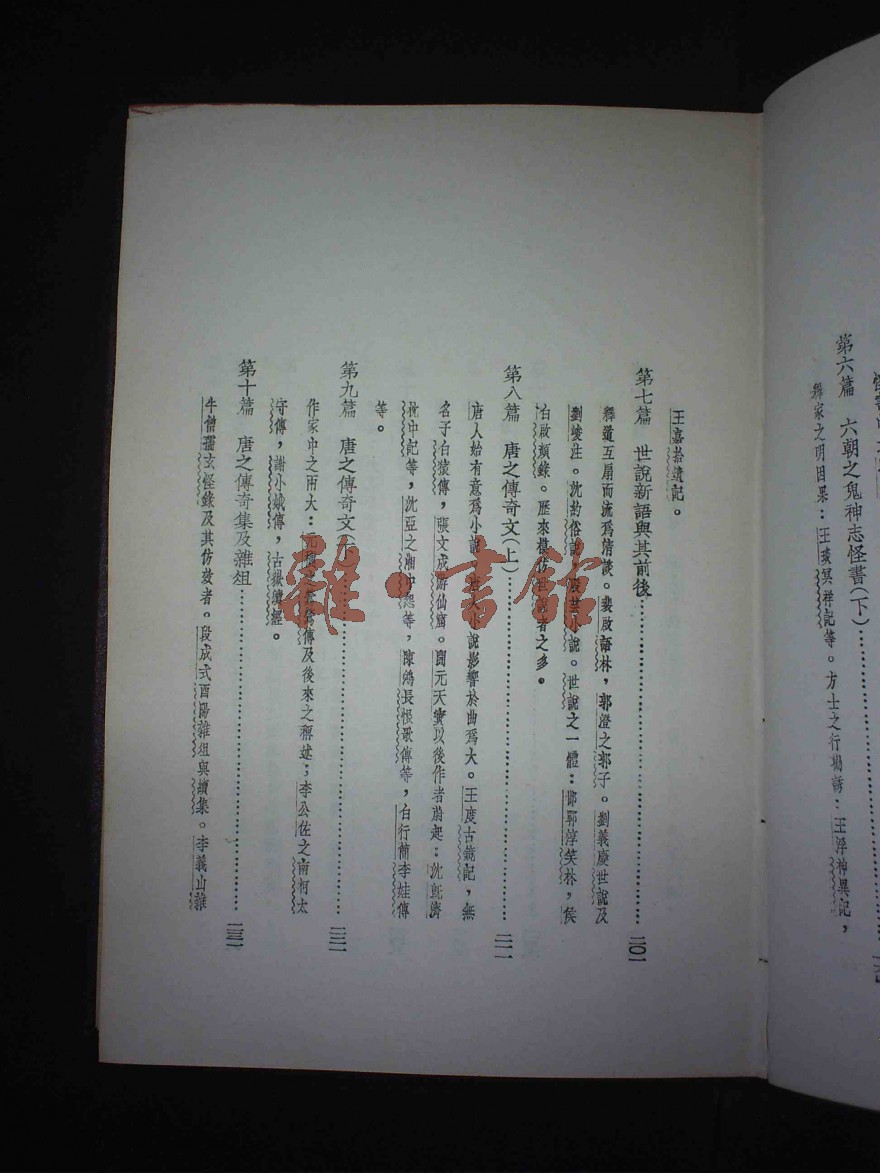 第六篇 六朝之鬼神志怪書(下)
釋家之明因果：王琰冥祥記等。方士之行勸誘：王浮神異記，
王嘉拾遺記。
第七篇 世說新語與其前後 二〇一
釋道互扇而流爲清談。裴啟語林，郭澄之郭子。劉義慶世說及
劉峻注。沈約俗說，殷芸小說。世說之一體：邯鄲淳笑林，侯
白啟顏錄。歷來模仿世說者之多。
第八篇 唐之傳奇文(上) 二一一
唐人始有意爲小說，
小說影響於曲爲大。王度古鏡記，無
名子白猿傳，張文成游仙窟。開元天寶以後作者蔚起：沈旣濟
枕中記等，沈亞之湘中怨等，陳鴻長恨歌傳等，白行簡李娃傳
等。
第九篇 唐之傳奇文(下) 二二一
作家中之兩大：元稹鶯鶯傳及後來之稱述；李公佐之南柯太
守傳，謝小娥傳，古嶽瀆經。
第十篇 唐之傳奇集及雜俎 二三一
牛僧孺玄怪錄及其仿效者。段成式酉陽雜俎與續集。李義山雜
雜·書館